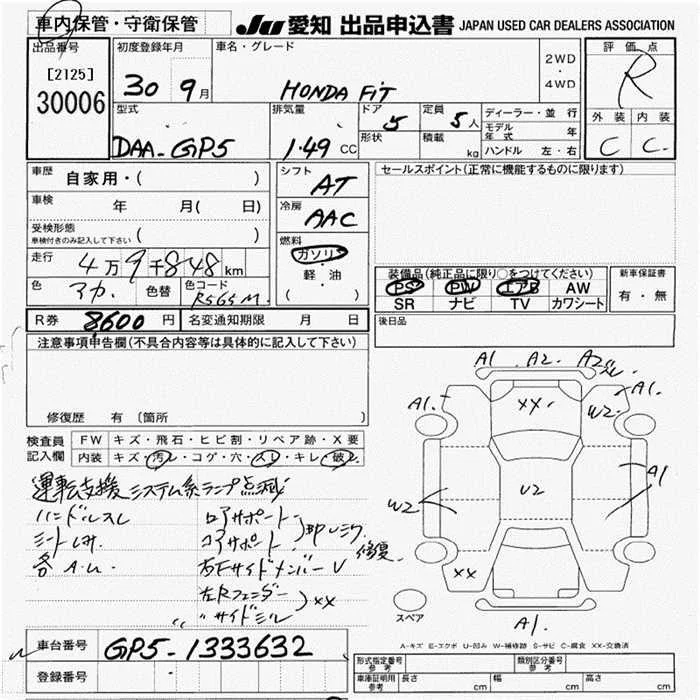 車内保管・守衛保管
JU 愛知 出品申込書 JAPAN USED CAR DEALERS ASSOCIATION
出品番号 初度登録年月 車名・グレード 評価点
[2125]
30006 30 9月 HONDA FiT 2WD・4WD R
型式 排気量 ドア 定員 ディーラー・並行 外装 内装
DAA-GP5 1.49 CC 5 5人 モデル年式 年 C C
形状 積載 kg ハンドル 左・右
車歴 自家用・( ) シフト AT セールスポイント(正常に機能するものに限ります)
車検 年 月( 日) 冷房 AAC
受検形態 車検付きのみ記入して下さい ( ) 燃料 ガソリン
走行 4万9千848km 軽・油 装備品(純正品に限り○をつけてください) 新車保証書
色 色替 色コード ( ) PS PW エアB AW 有・無
R565M SR ナビ TV カワシート
R券 8600円 名変通知期限 月 日 後日品
注意事項申告欄(不具合内容等は具体的に記入して下さい)
A1 A2 A2
A1. XX. W2. A1.
修復歴 有 〔箇所
検査員記入欄 FW キズ・飛石・ヒビ割・リペア跡・X要
内装 キズ・汚レ・コゲ・穴・スレ・キレ・破レ
A1
運転支援システム系ランプ点滅 U2
W2
ハンドルスレ ロアサポート
シートしみ. コアサポート 修復.
各A.U 右Fサイドメンバー U
XX
左Rフェンダー
〃サイドシル XX
スペア
A1.
車台番号 GP5-1333632
A-キズ E-エクボ U-凹み W-補修跡 S-サビ C-腐食 XX-交換済
登録番号
形式指定番号 参考 類別区分番号 参考
車庫証明用 参考 長さ cm 幅 cm 高さ cm